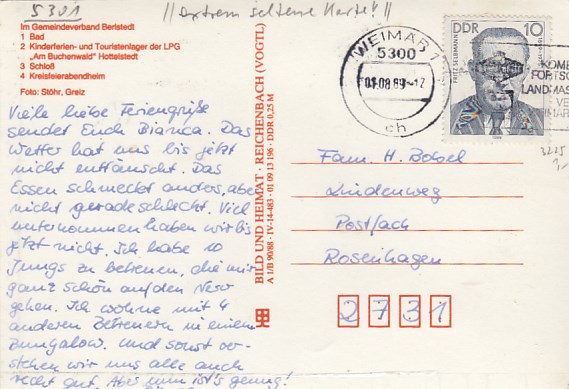 5301 //extrem seltene Karte!//
Im Gemeindeverband Berlstedt
1 Bad
2 Kinderferien- und Touristenlager der LPG
„Am Buchenwald" Hottelstedt
3 Schloß
4 Kreisfeierabendheim
Foto: Stöhr, Greiz
Viele liebe Feriengrüße
sendet Euch Bianca. Das
Wetter hat uns bis jetzt
nicht enttäuscht. Das
Essen schmeckt anders, aber
nicht gerade schlecht. Viel
unternommen haben wir bis
jetzt nicht. Ich habe 10
Jungs zu betreuen, die mir
ganz schön auf den Nerv
gehen. Ich wohne mit 4
anderen Betreuern in einem
Bungalow. Und sonst ver-
stehen wir uns alle auch
recht gut. Aber nun ist's genug!
BILD UND HEIMAT · REICHENBACH (VOGTL)
A 1/B 90/88 · IV-14-483 · 01 09 13 196 · DDR 0,25 M
WEIMAR 1
5300
01.08.89-17
ch
DDR 10
FRITZ SELBMANN
1988
KOME
FORTSC
LANDMAS
VE
IMAR
3225
1,-
Fam. H. Bobsel
Lindenweg
Postfach
Rosenhagen
2731